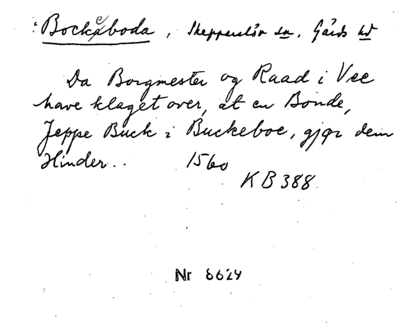 Bockeboda, Skepperslöv sn, Gärds hd
Da Borgmester og Raad i Vee
have klaget over, at en Bonde,
Jeppe Buck i Buckeboe, gjør dem
Hinder.. 1560
KB 388.
Nr 6629